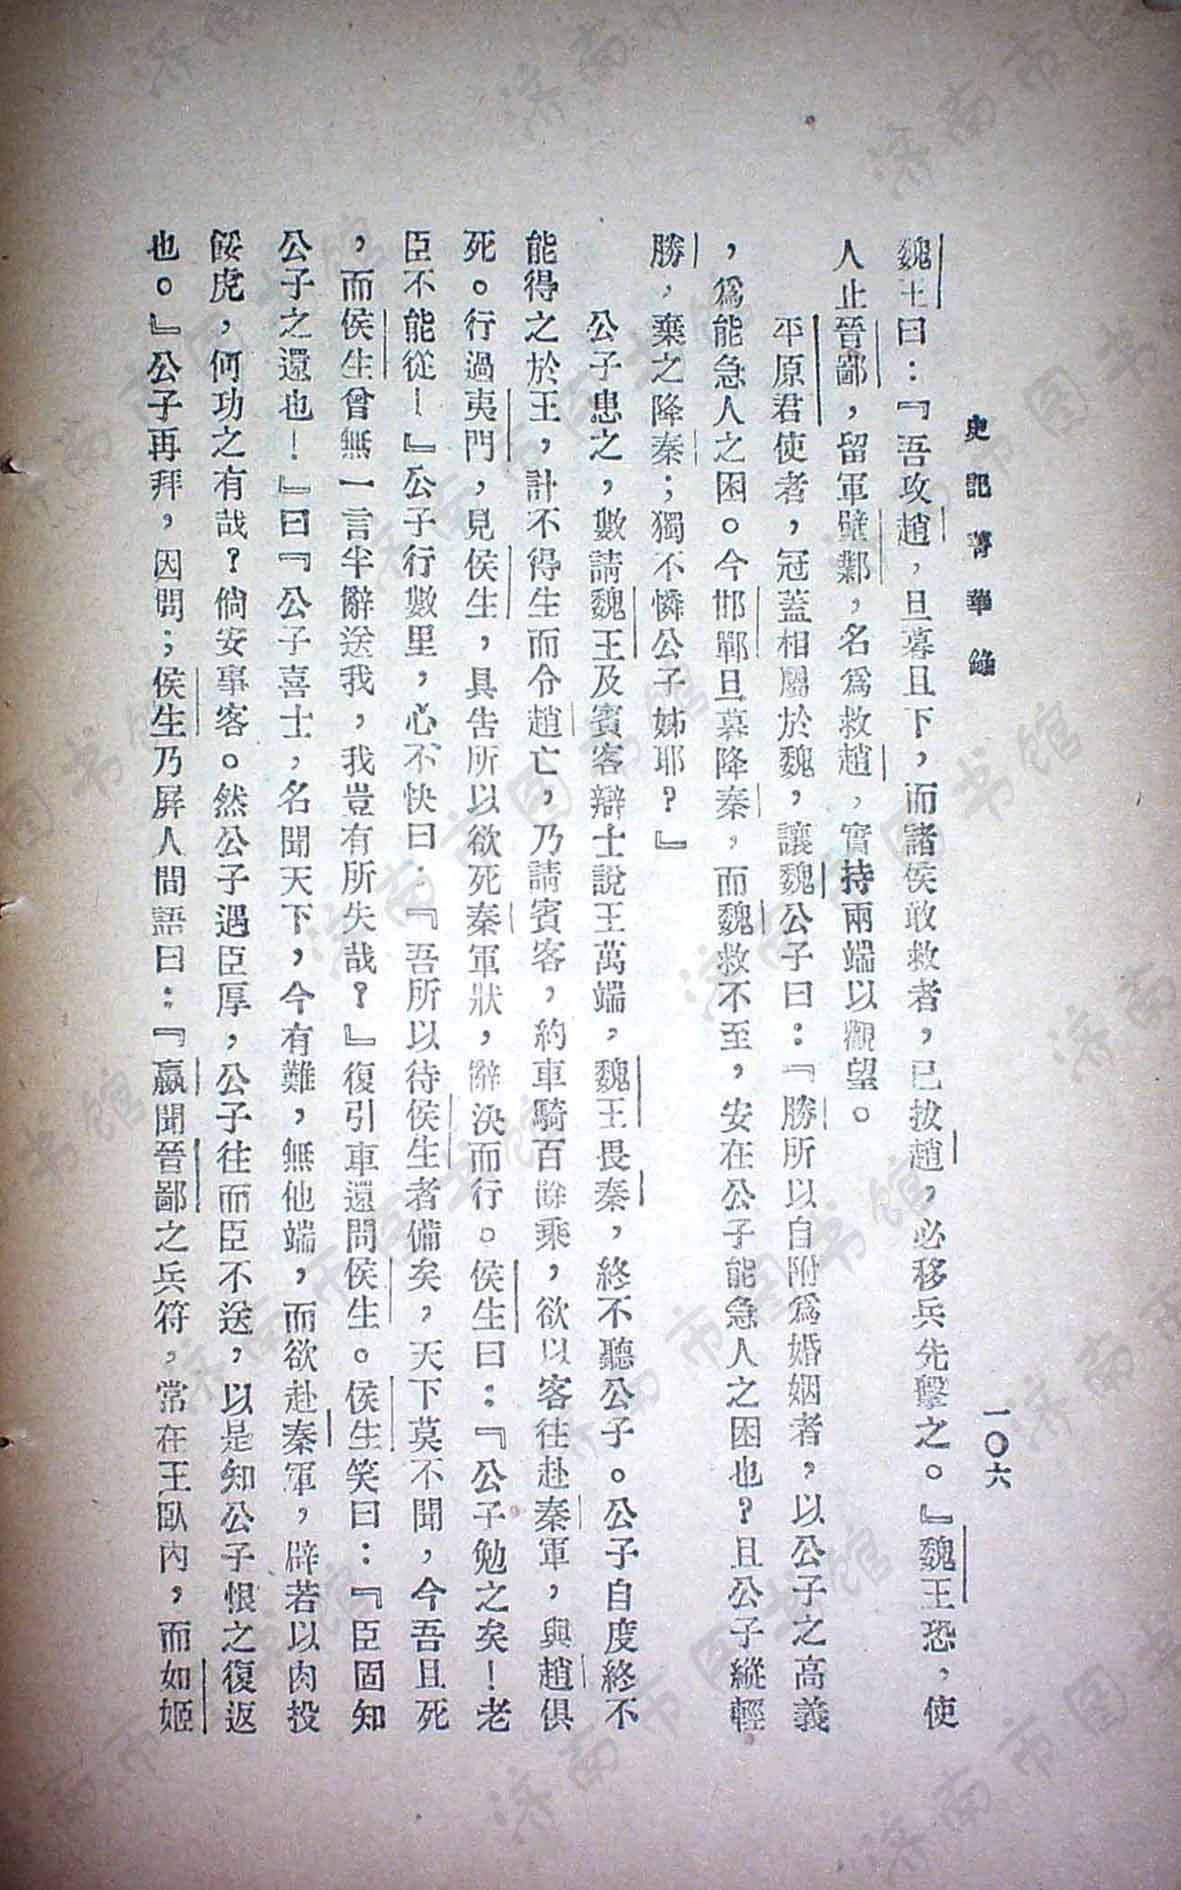 史記菁華錄
一〇六
魏王曰：『吾攻趙，旦暮且下，而諸侯敢救者，已拔趙，必移兵先擊之。』魏王恐，使
人止晉鄙，留軍壁鄴，名爲救趙，實持兩端以觀望。
平原君使者，冠蓋相屬於魏，讓魏公子曰：『勝所以自附爲婚姻者，以公子之高義
，爲能急人之困。今邯鄲旦暮降秦，而魏救不至，安在公子能急人之困也？且公子縱輕
勝，棄之降秦；獨不憐公子姊耶？』
公子患之，數請魏王及賓客辯士說王萬端，魏王畏秦，終不聽公子。公子自度終不
能得之於王，計不得生而令趙亡，乃請賓客，約車騎百餘乘，欲以客往赴秦軍，與趙俱
死。行過夷門，見侯生，具告所以欲死秦軍狀，辭決而行。侯生曰：『公子勉之矣！老
臣不能從！』公子行數里，心不快曰：『吾所以待侯生者備矣，天下莫不聞，今吾且死
，而侯生曾無一言半辭送我，我豈有所失哉？』復引車還問侯生。侯生笑曰：『臣固知
公子之還也！』曰『公子喜士，名聞天下，今有難，無他端，而欲赴秦軍，辟若以肉投
餒虎，何功之有哉？倘安事客。然公子遇臣厚，公子往而臣不送，以是知公子恨之復返
也。』公子再拜，因問；侯生乃屏人間語曰：『嬴聞晉鄙之兵符，常在王臥內，而如姬
济南市图书馆